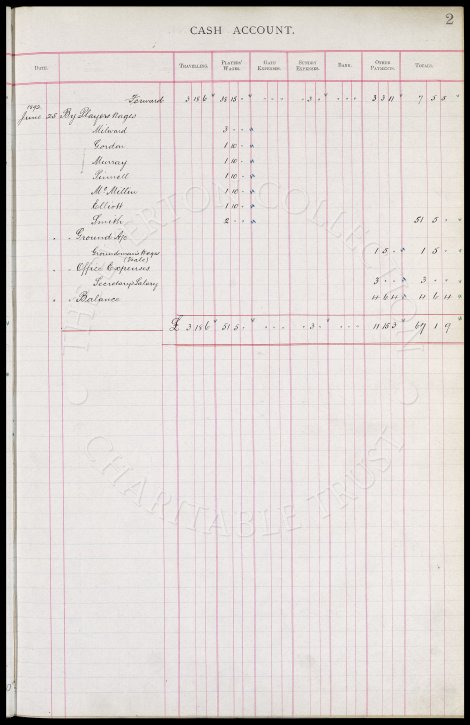 2
CASH ACCOUNT.
DATE. TRAVELLING. PLAYERS' WAGES. GATE EXPENSES. SUNDRY EXPENSES. BANK. OTHER PAYMENTS. TOTALS.
Forward 3 18 6 - - - - 3 - - - - 3 3 11 7 5 5
1892
June 25 By Players Wages
Milward 3 - -
Gordon 1 10 -
Murray 1 10 -
Pinnell 1 10 -
McMillin 1 10 -
Elliott 1 10 -
Smith 2 - - 51 5 -
" " Ground A/c
Groundsman's Wages 1 5 - 1 5 -
(Neale)
" " Office Expenses
Secretary's Salary 3 - - 3 - -
" " Balance 4 6 4 4 6 4
£ 3 18 6 51 5 - - - - - 3 - - - - 11 15 3 67 1 9
THE EVERTON COLLECTION
CHARITABLE TRUST